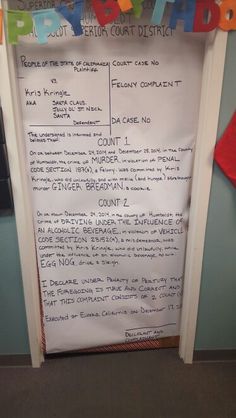 HUMBOLDT SUPERIOR COURT DISTRICT
PEOPLE OF THE STATE OF CALIFORNIA
PLAINTIFF
COURT CASE NO
VS
FELONY COMPLAINT
KRIS KRINGLE
AKA SANTA CLAUS
JOLLY OL' ST. NICK
SANTA
DEFENDANT
DA CASE NO
The undersigned is informed and
believes that:
COUNT 1
On or between December 24, 2014 and December 25, 2014, in the County
of Humboldt, the crime of MURDER, in violation of PENAL
CODE SECTION 187(a), a felony, was committed by Kris
Kringle, who did unlawfully, and with malice
murder GINGER BREADMAN, a cookie.
COUNT 2
On or between December 24, 2014, in the county of Humboldt, the
crime of DRIVING UNDER THE INFLUENCE OF
AN ALCOHOLIC BEVERAGE, in violation of VEHICLE
CODE SECTION 23152(a), a misdemeanor, was
committed by Kris Kringle, who did unlawfully, while
under the influence of an alcoholic beverage, to wit:
EGG NOG, drive a sleigh.
I DECLARE UNDER PENALTY OF PERJURY THAT
THE FOREGOING IS TRUE AND CORRECT AND
THAT THIS COMPLAINT CONSISTS OF 2 COUNT(S)
Executed at Eureka, California on December 17, 20
DECLARANT AND
COMPLAINANT